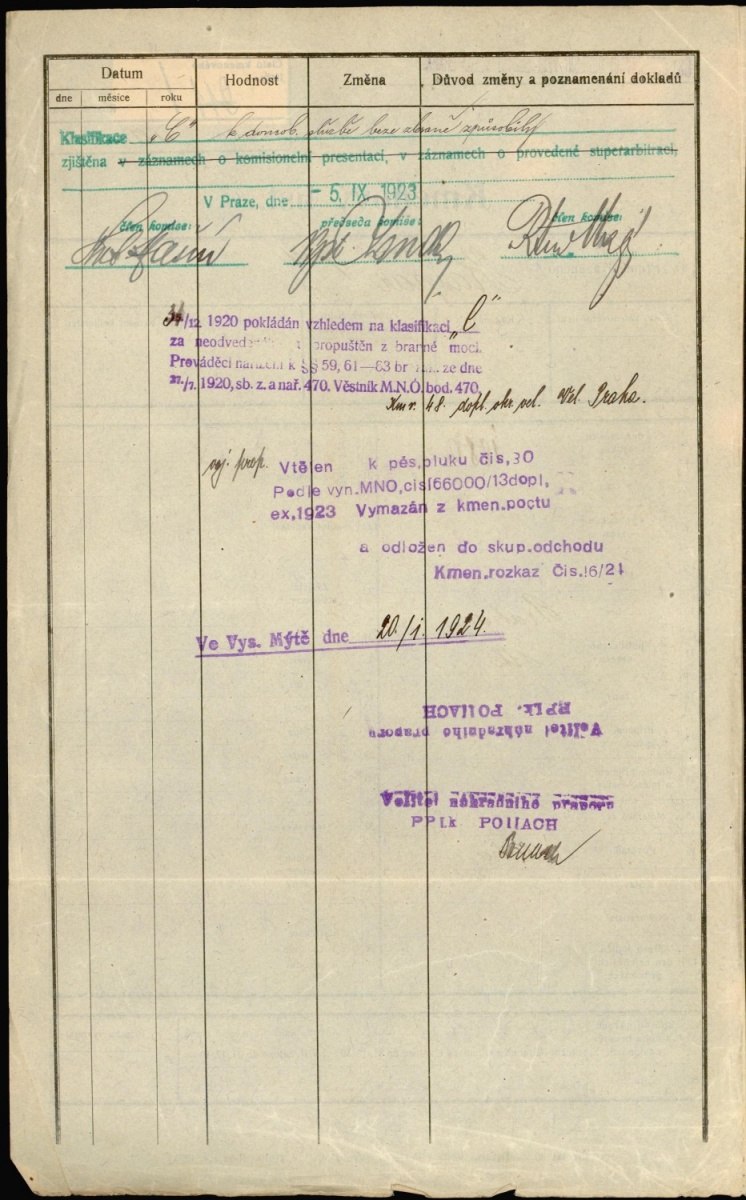 Datum
Hodnost
Změna
Důvod změny a poznamenání dokladů
dne
měsíce
roku
Klasifikace „C" k domob. službě beze zbraně způsobilý
zjištěna v záznamech o komisionelní presentaci, v záznamech o provedené superarbitraci,
V Praze, dne - 5. IX 1923
člen komise:
předseda komise:
člen komise:
31/12. 1920 pokládán vzhledem na klasifikaci „C"
za neodvedeného a propuštěn z branné moci.
Prováděcí nařízení k §§ 59, 61—63 br. zák. ze dne
27./7. 1920, sb. z. a nař. 470. Věstník M.N.Ó. bod. 470,
Km r. 48. dopl. okr. vel. Vel. Praha.
voj. prop.
Vtělen k pěš,pluku čís,30
Podle vyn.MNO,cis166000/13dopl,
ex,1923 Vymazán z kmen.poctu
a odložen do skup.odchodu
Kmen.rozkaz Čis.16/21
Ve Vys. Mýtě dne 20./I. 1924.
Velitel náhradního praporu
PPlk. POllACH
Velitel náhradního praporu
PPlk POllACH